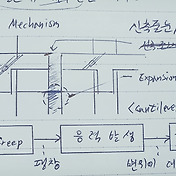 Mechanism
신축줄눈,
Expansion
Cantilever
Creep
응력 발생
팽창
변위의 대